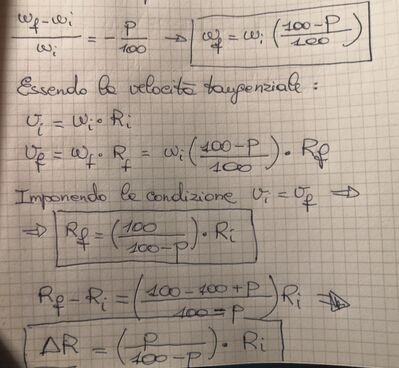 (ωf-ωi)/ωi = -P/100 → ωf = ωi((100-P)/100)
Essendo la velocità tangenziale:
vi = ωi·Ri
vf = ωf·Rf = ωi((100-P)/100)·Rf
Imponendo la condizione vi = vf ⇒
⇒ Rf = (100/(100-P))·Ri
Rf-Ri = ((100-100+P)/(100-P))Ri ⇒
ΔR = (P/(100-P))·Ri